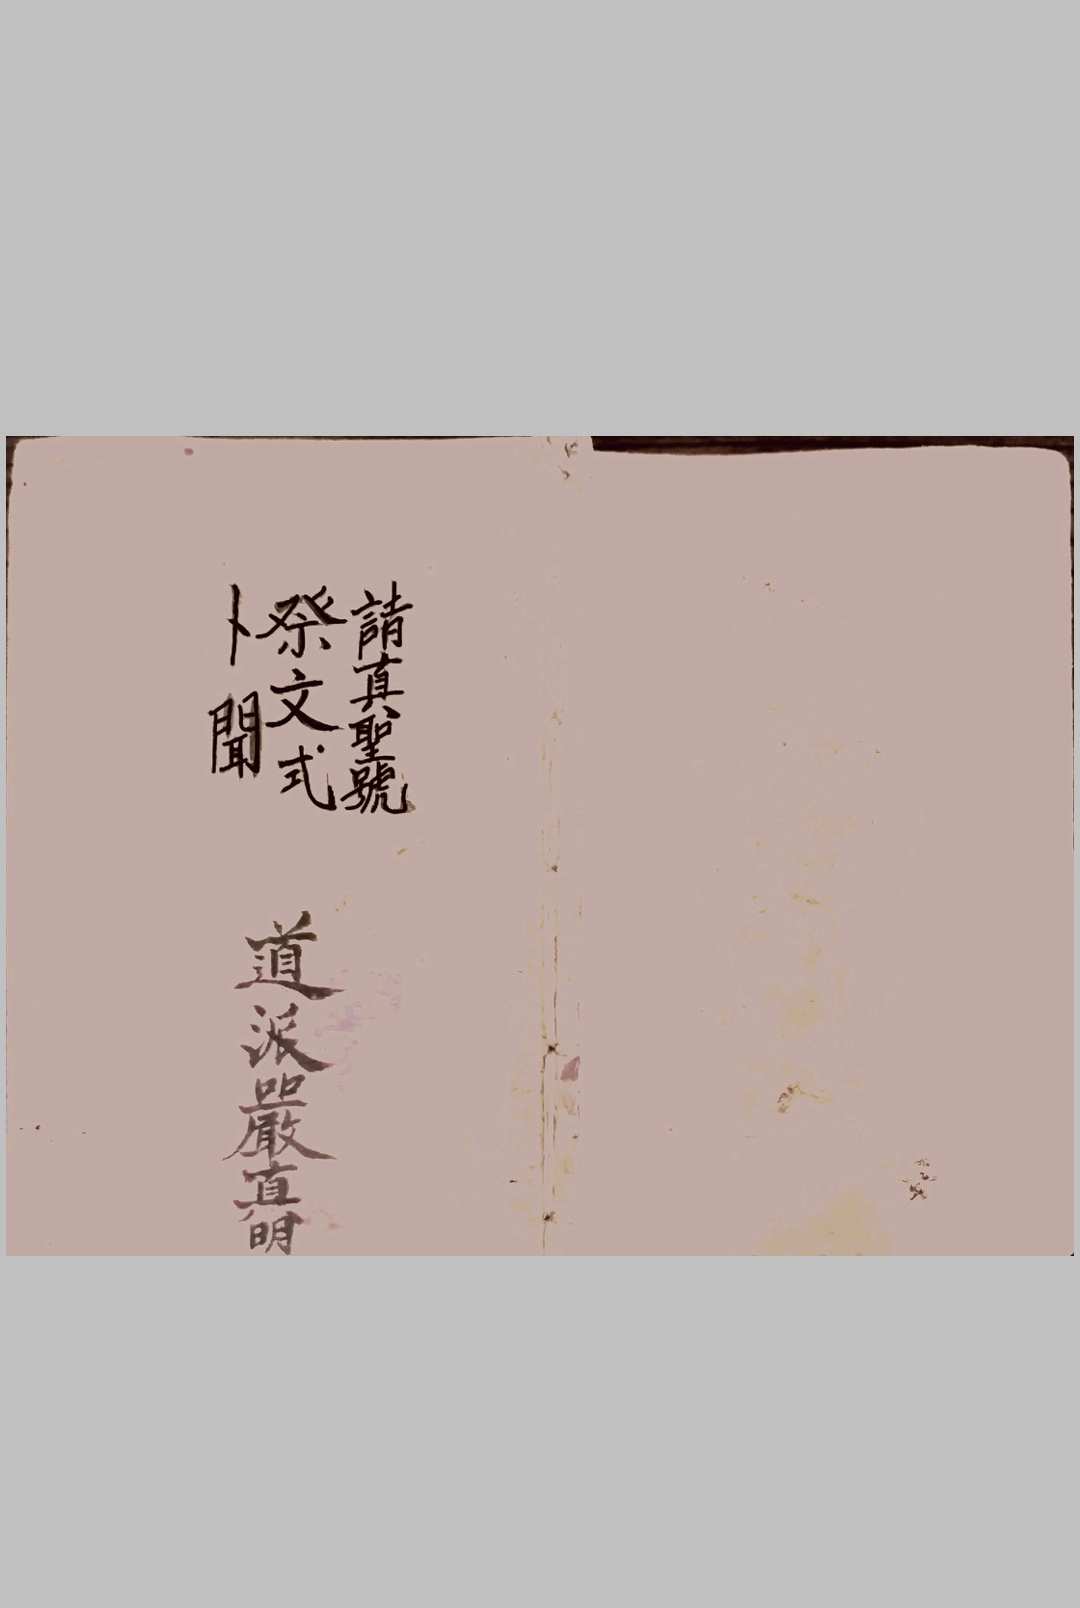 請真聖號
祭文式
卜聞
道派嚴真明